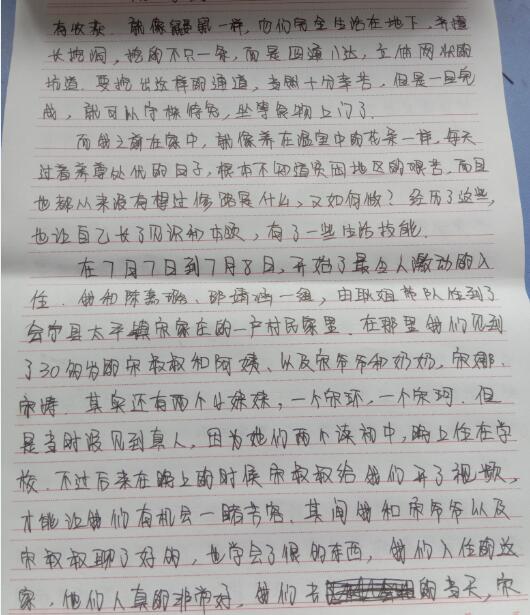 有收获. 就像鼹鼠一样, 它们完全生活在地下, 并擅
长挖洞, 挖的不只一条, 而是四通八达, 立体网状的
坑道. 要挖出这样的通道, 当然十分辛苦, 但是一旦完
成, 就可以守株待兔, 坐等食物上门了.
而我之前在家中, 就像养在温室中的花朵一样, 每天
过着养尊处优的日子, 根本不知道贫困地区的艰苦, 而且
也都从来没有想过修路是什么, 又如何做? 经历了这些,
也让自己长了见识和本领, 有了一些生活技能.
在7月7日到7月8日, 开始了最令人激动的入
住. 我和陈嘉 一组, 由耿姐带队住到了
会宁县太平镇宋家庄的一户村民家里. 在那里我们见到
了30多岁的宋叔叔和阿姨, 以及宋爷爷和奶奶, 宋娜,
宋涛. 其实还有两个小妹妹, 一个宋环, 一个宋珂. 但
是当时没见到真人, 因为她们两个读初中, 晚上住在学
校. 不过后来在晚上的时候宋叔叔给我们开了视频,
才能让我们有机会一睹芳容. 其间我和宋爷爷以及
宋叔叔聊了好多, 也学会了很多东西, 我们入住的这
家, 他们人真的非常好, 我们去 的当天, 宋